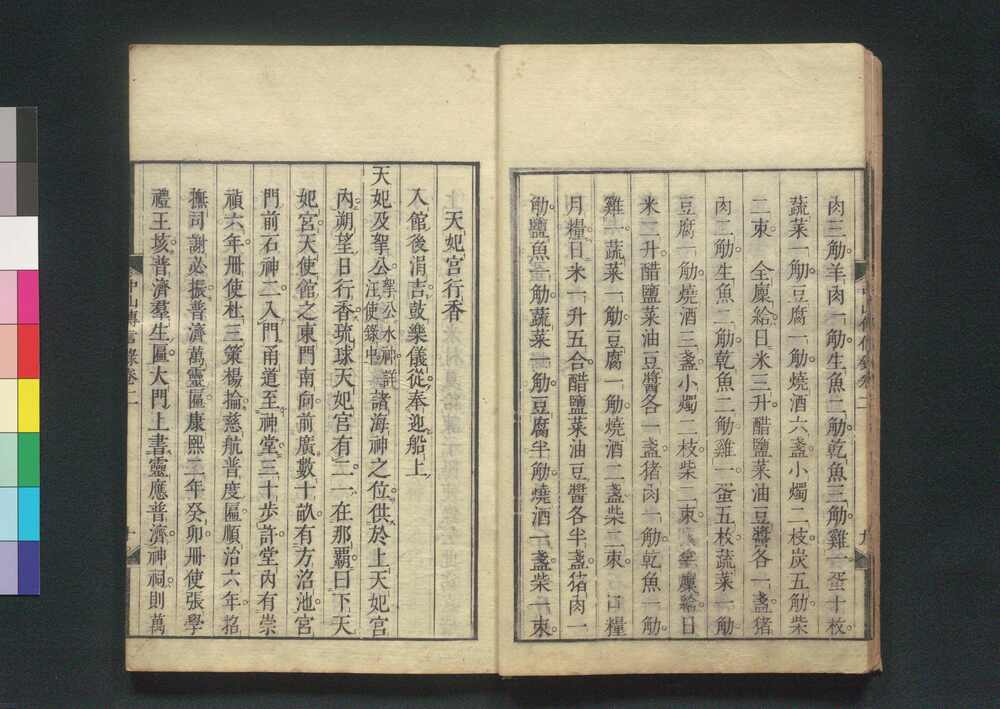 肉三觔羊肉一觔生魚二觔乾魚三觔雞一蛋十枚
蔬菜一觔豆腐一觔燒酒六盞小燭二枝炭五觔柴
二束　全廩給日米三升醋鹽菜油豆醬各一盞猪
肉二觔生魚二觔乾魚二觔雞一蛋五枚蔬菜一觔
豆腐一觔燒酒三盞小燭二枝柴二束　廩給日
米二升醋鹽菜油豆醬各一盞猪肉一觔乾魚一觔
雞一蔬菜一觔豆腐一觔燒酒二盞柴二束　口糧
月糧日米一升五合醋鹽菜油豆醬各半盞猪肉一
觔鹽魚一觔蔬菜一觔豆腐半觔燒酒一盞柴一束
中山傳信錄卷二
九
天妃宮行香
入館後涓吉鼓樂儀從奉迎船上
天妃及拏公拏公水神詳汪使錄中諸海神之位供於上天妃宮
內朔望日行香琉球天妃宮有二一在那覇曰下天
妃宮天使館之東門南向前廣數十畝有方沼池宮
門前石神二入門甬道至神堂三十步許堂內有崇
禎六年冊使杜三策楊掄慈航普度匾順治六年招
撫司謝必振普濟萬靈匾康熙二年癸卯冊使張學
禮王垓普濟羣生匾大門上書靈應普濟神祠則萬
中山傳信錄卷二
十